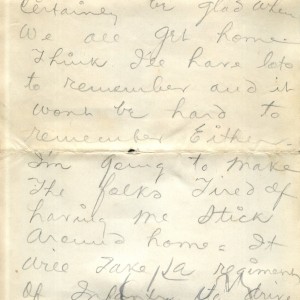 Certainly be glad when
We all get home
Think I'll have lots
to remember and it
wont be hard to
remember Either.
I'm going to make
The folks Tired of
having me Stick
Around home. It
will Take a regiment
Of Infantry to drive